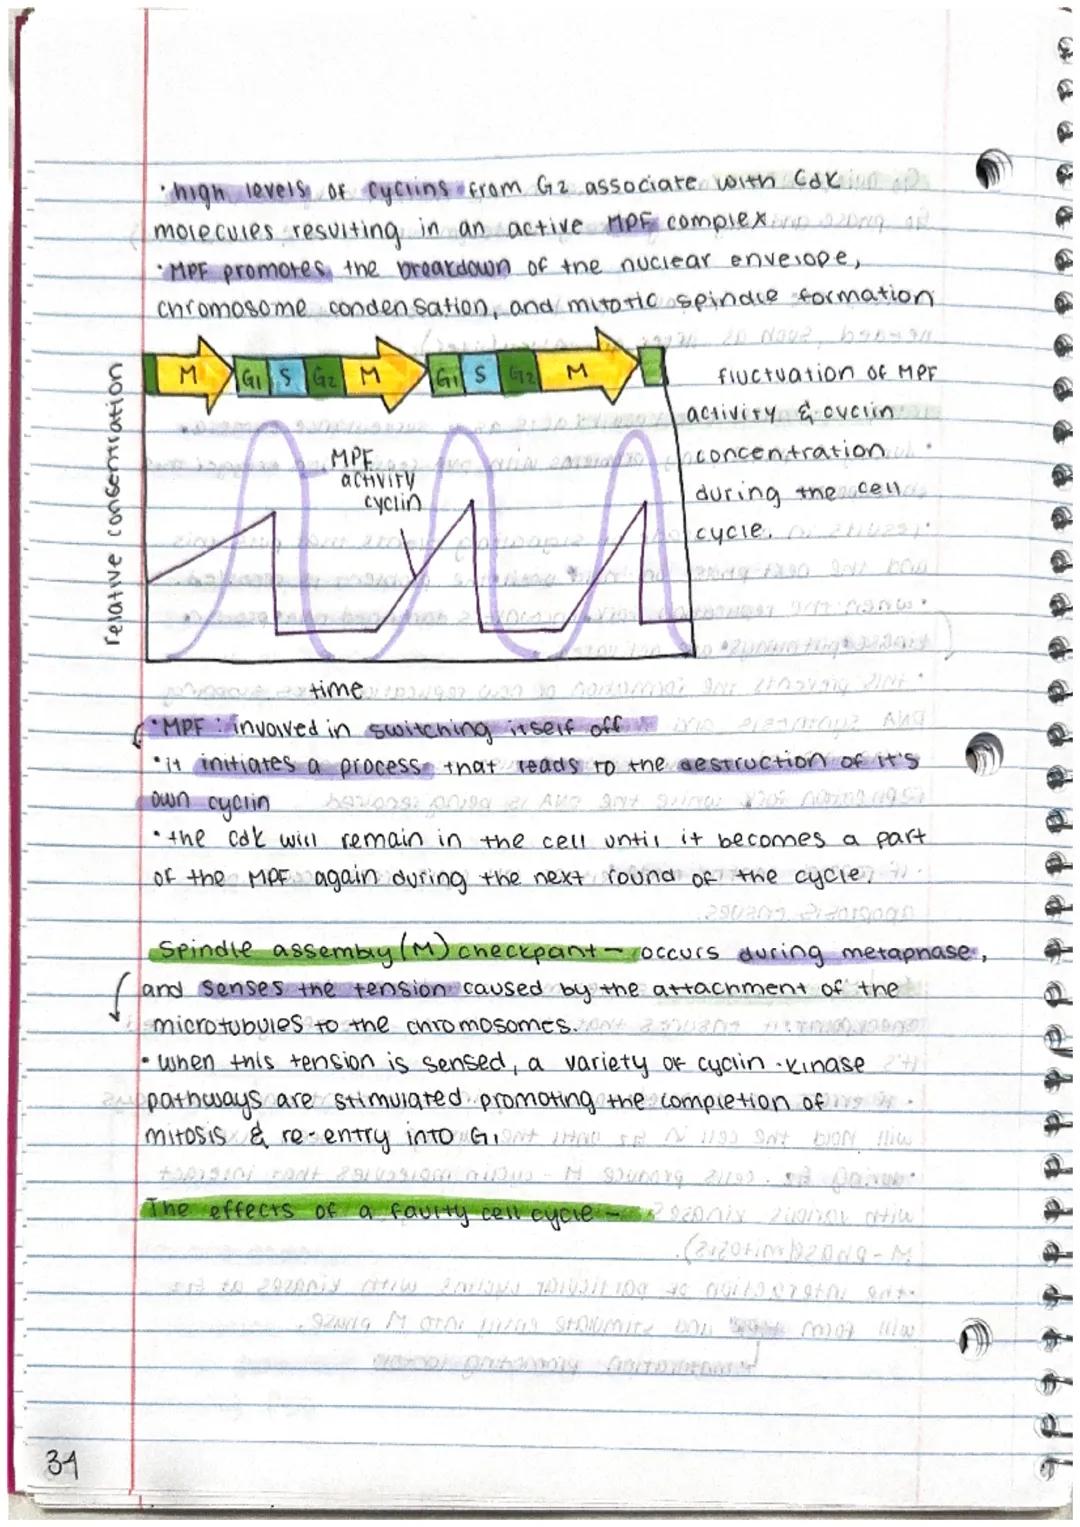 • high levels of cyclins from G2 associate with Cdk
molecules resulting in an active MPF complex.
• MPF promotes the breakdown of the nuclear envelope,
chromosome condensation, and mitotic spindle formation
M G1 S G2 M G1 S G2 M
fluctuation of MPF
activity & cyclin
concentration
during the cell
cycle.
relative consentration
MPF
activity
cyclin
time
• MPF: involved in switching itself off
• it initiates a process that leads to the destruction of it's
own cyclin
• the cdk will remain in the cell until it becomes a part
of the MPF again during the next round of the cycle.
Spindle assembly (M) checkpoint - occurs during metaphase,
and senses the tension caused by the attachment of the
microtubules to the chromosomes.
• when this tension is sensed, a variety of cyclin-kinase
pathways are stimulated promoting the completion of
mitosis & re-entry into G1
The effects of a faulty cell cycle -
34